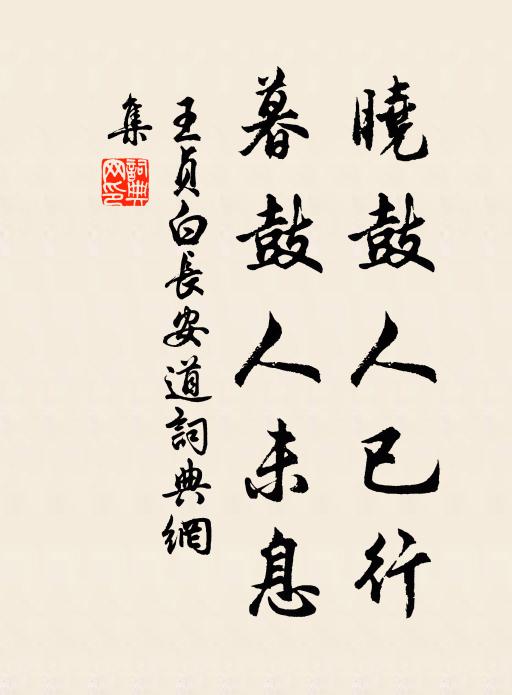 曉鼓人已行
暮鼓人未息
王貞白長安道詞典網
集
詞典網印